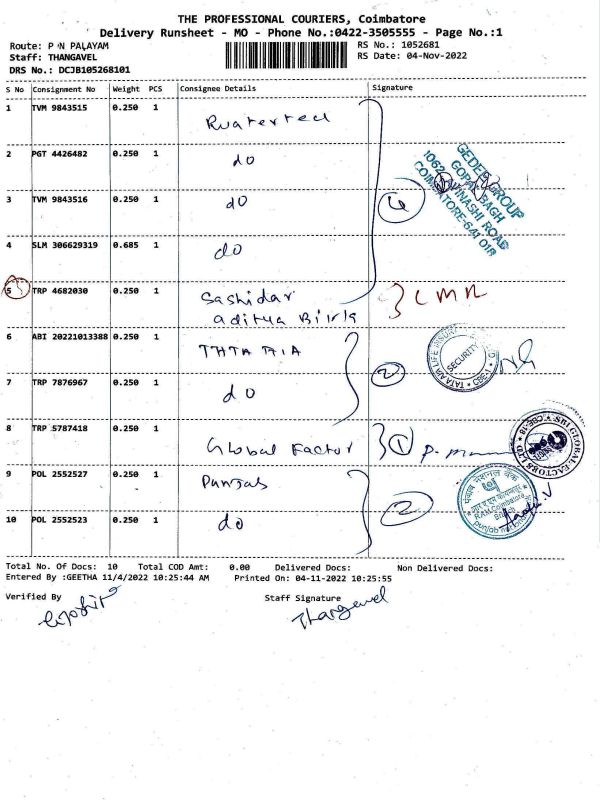 THE PROFESSIONAL COURIERS, Coimbatore
Delivery Runsheet - MO - Phone No.:0422-3505555 - Page No.:1
Route: P N PALAYAM
RS No.: 1052681
Staff: THANGAVEL
RS Date: 04-Nov-2022
DRS No.: DCJB105268101
S No Consignment No Weight PCS Consignee Details Signature
1 TVM 9843515 0.250 1
2 PGT 4426482 0.250 1 do
3 TVM 9843516 0.250 1 do
4 SLM 306629319 0.685 1 do
4
GEDEE GROUP
GOPAL BAGH
1062, AVINASHI ROAD
COIMBATORE-641 018
5 TRP 4682030 0.250 1 Sashidar
aditya Birla
6 ABI 20221013388 0.250 1 TATA AIA
7 TRP 7876967 0.250 1 do
2
SECURITY
8 TRP 5787418 0.250 1 Global Factor
1
SBI GLOBAL FACTORS LTD
9 POL 2552527 0.250 1 Punjab
10 POL 2552523 0.250 1 do
2
पंजाब नैशनल बैंक
Total No. Of Docs: 10 Total COD Amt: 0.00 Delivered Docs: Non Delivered Docs:
Entered By :GEETHA 11/4/2022 10:25:44 AM Printed On: 04-11-2022 10:25:55
Verified By Staff Signature
Thangavel